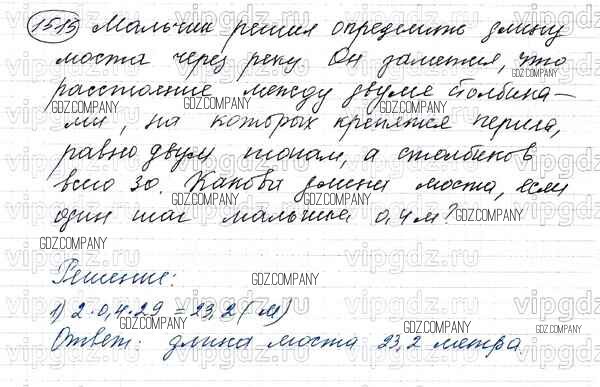 1515 Мальчик решил определить длину
моста через реку Он заметил, что
расстояние между двумя столбика-
ми, на которых крепятся перила,
равно двум шагам, а столбиков
всего 30. Какова длина моста, если
один шаг мальчика 0,4 м?
Решение:
1) 2·0,4·29 = 23,2 (м)
Ответ: длина моста 23,2 метра.